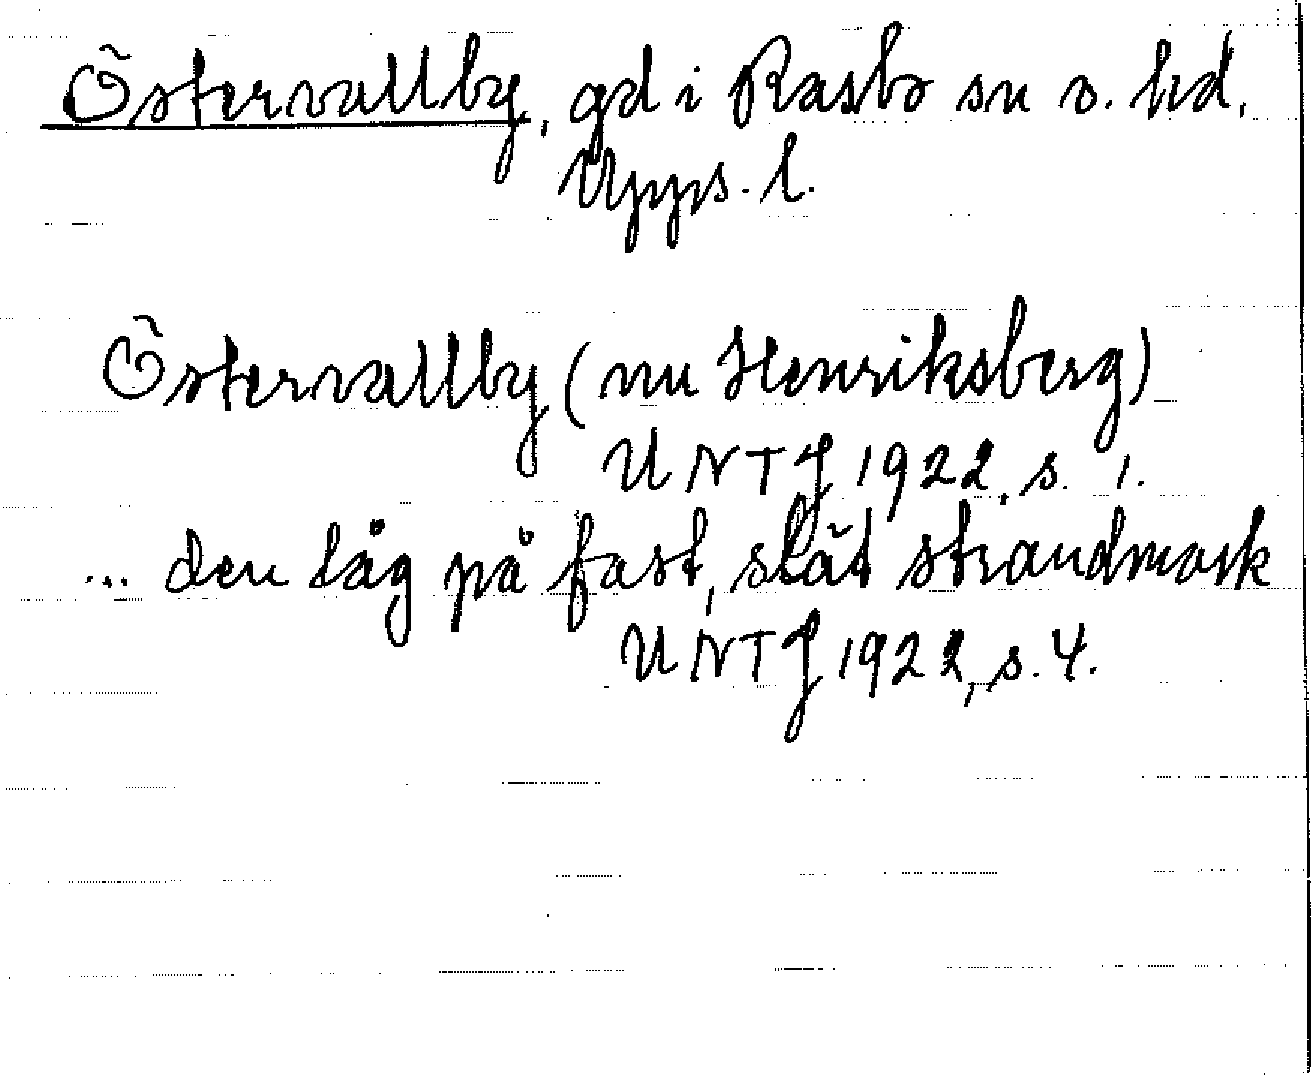 Östervallby, gd i Rasbo sn o. hd,
Upps. l.
Östervallby (nu Henriksberg)
UNTJ 1922, s. 1.
... den låg på fast, slät strandmark
UNTJ 1922, s. 4.